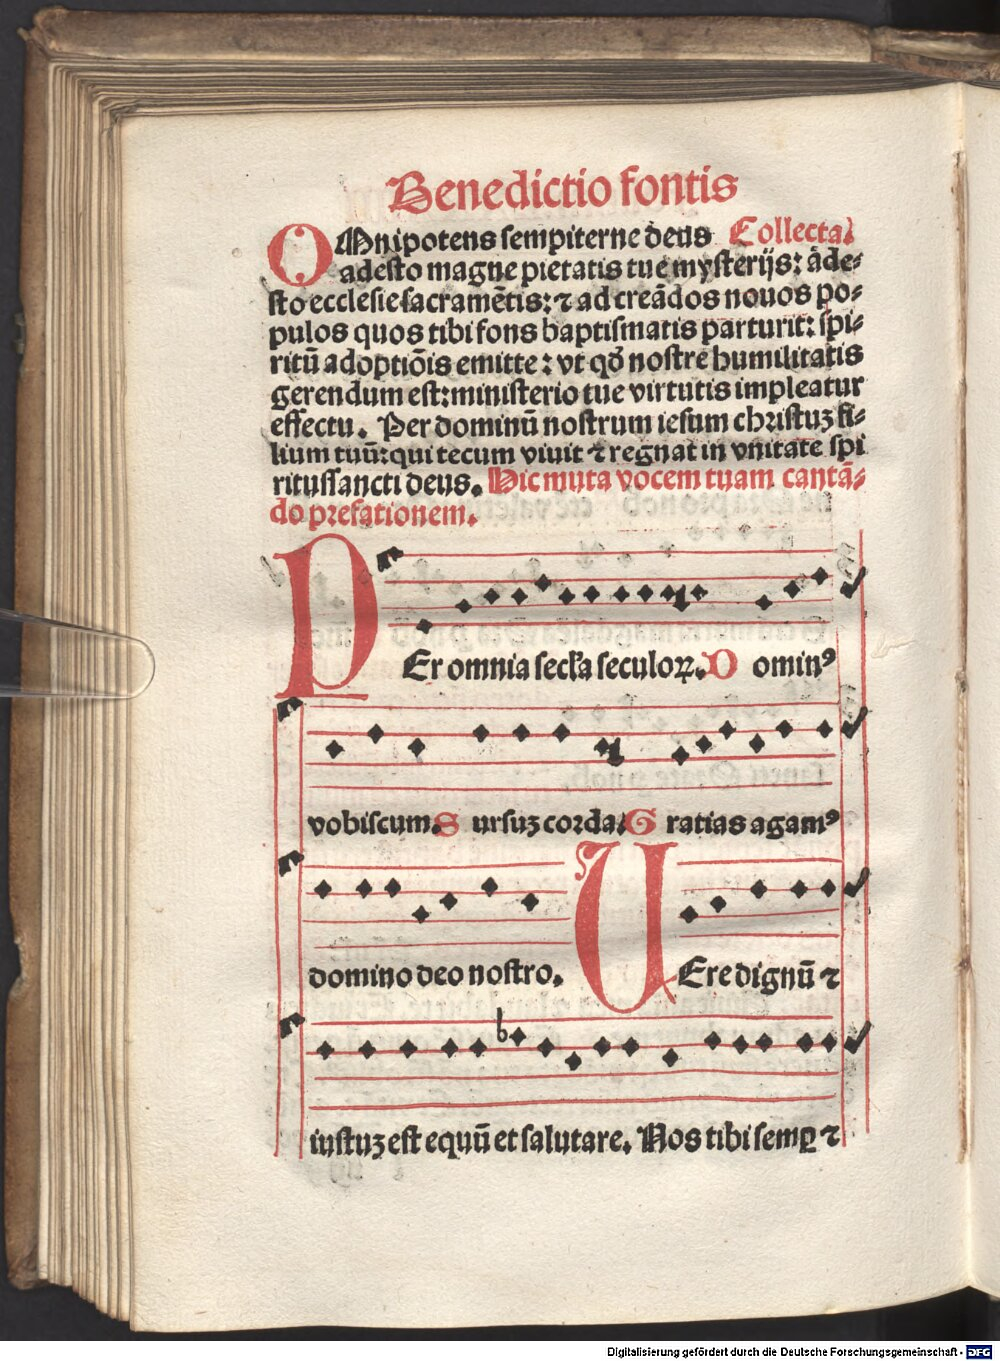 Benedictio fontis
OMnipotens sempiterne deus Collecta.
adesto magne pietatis tue mysterijs: ade-
sto ecclesie sacramētis: ⁊ ad creādos nouos po-
pulos quos tibi fons baptismatis parturit: spi-
ritū adoptiōis emitte: vt qđ nostre humilitatis
gerendum est: ministerio tue virtutis impleatur
effectu. Per dominū nostrum iesum christuꝫ fi-
lium tuū: qui tecum viuit ⁊ regnat in vnitate spi
ritussancti deus. Hic muta vocem tuam cantā-
do prefationem.
PEr omnia secła seculoꝝ. D ominꝰ
vobiscum. S ursuꝫ corda. G ratias agamꝰ
domino deo nostro. UEre dignū ⁊
iustuꝫ est equū et salutare. Nos tibi semꝑ ⁊
Digitalisierung gefördert durch die Deutsche Forschungsgemeinschaft - DFG